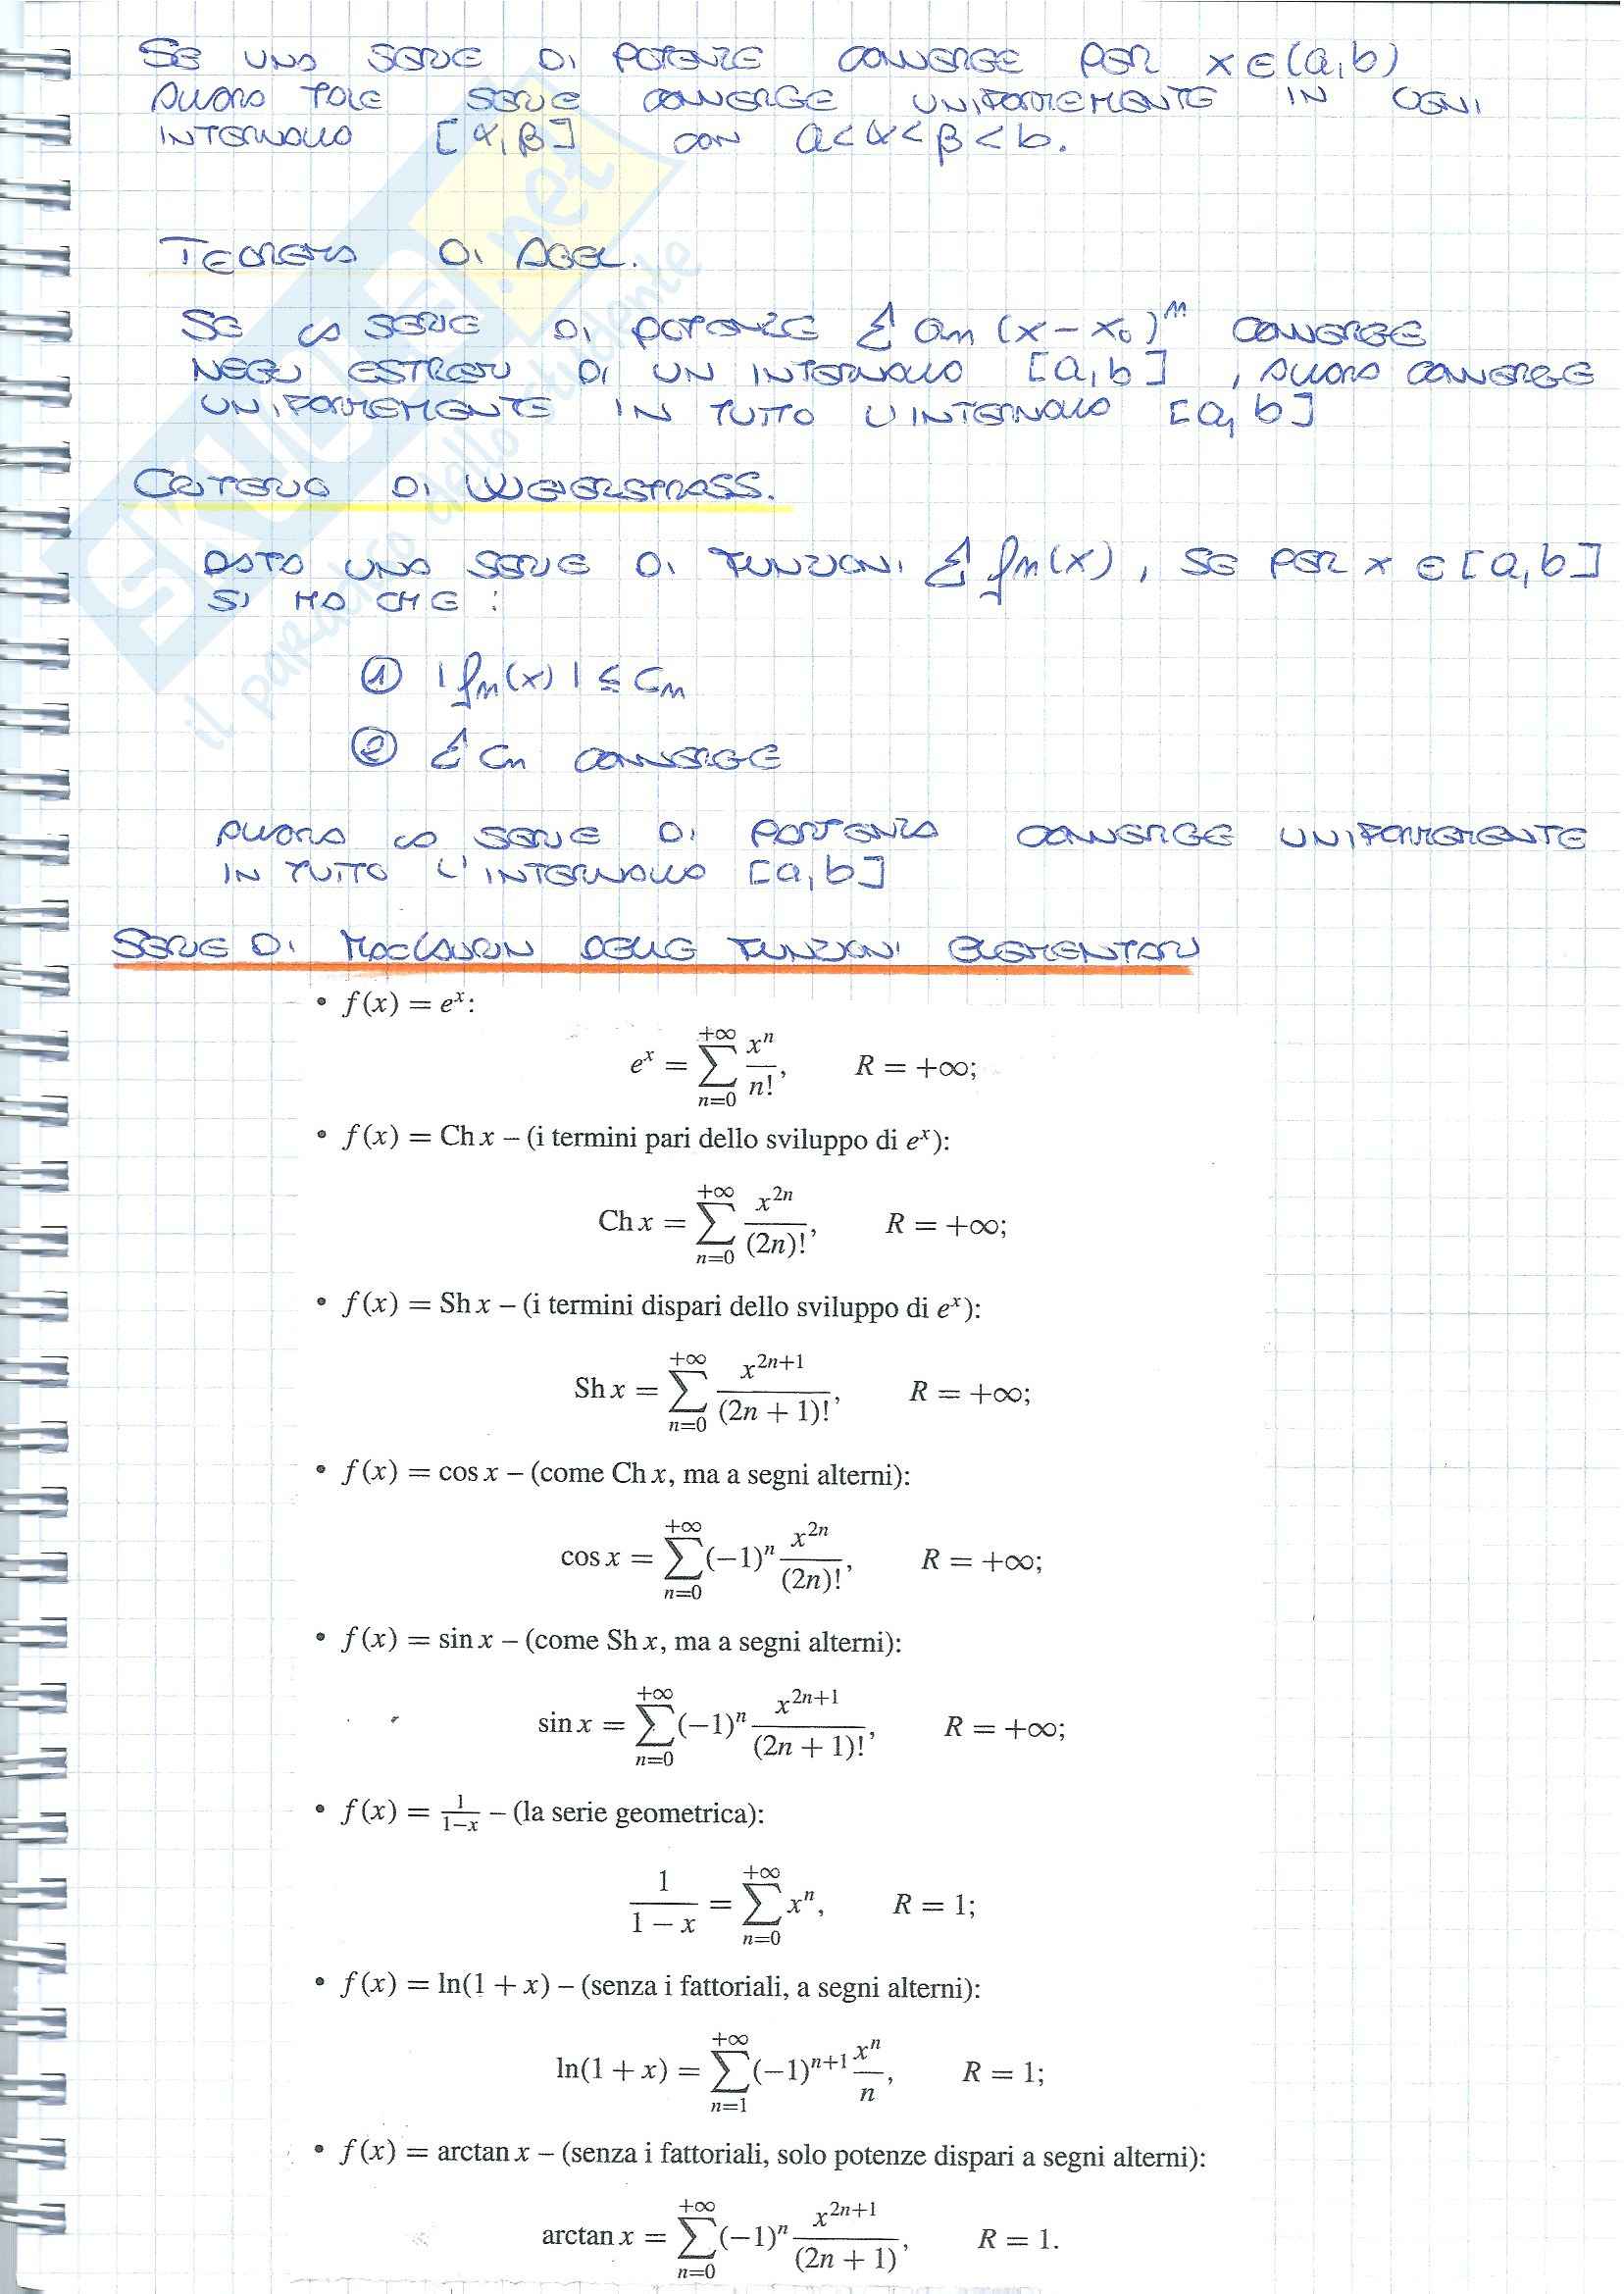 SE UNA SERIE DI POTENZE CONVERGE PER x ∈ (a,b)
ALLORA TALE SERIE CONVERGE UNIFORMEMENTE IN OGNI
INTERVALLO [α,β] CON a<α<β<b.
TEOREMA DI ABEL.
SE LA SERIE DI POTENZE Σ an (x-x₀)ⁿ CONVERGE
NEGLI ESTREMI DI UN INTERVALLO [a,b], ALLORA CONVERGE
UNIFORMEMENTE IN TUTTO L'INTERVALLO [a,b]
CRITERIO DI WEIERSTRASS.
DATA UNA SERIE DI FUNZIONI Σ fn(x), SE PER x ∈ [a,b]
SI HA CHE:
① |fn(x)| ≤ Cn
② Σ Cn CONVERGE
ALLORA LA SERIE DI POTENZA CONVERGE UNIFORMEMENTE
IN TUTTO L'INTERVALLO [a,b]
SERIE DI MACLAURIN DELLE FUNZIONI ELEMENTARI
• f(x) = eˣ:
eˣ = Σ_{n=0}^{+∞} xⁿ/n!, R = +∞;
• f(x) = Ch x – (i termini pari dello sviluppo di eˣ):
Ch x = Σ_{n=0}^{+∞} x^{2n}/(2n)!, R = +∞;
• f(x) = Sh x – (i termini dispari dello sviluppo di eˣ):
Sh x = Σ_{n=0}^{+∞} x^{2n+1}/(2n + 1)!, R = +∞;
• f(x) = cos x – (come Ch x, ma a segni alterni):
cos x = Σ_{n=0}^{+∞} (−1)ⁿ x^{2n}/(2n)!, R = +∞;
• f(x) = sin x – (come Sh x, ma a segni alterni):
sin x = Σ_{n=0}^{+∞} (−1)ⁿ x^{2n+1}/(2n + 1)!, R = +∞;
• f(x) = 1/(1−x) – (la serie geometrica):
1/(1 − x) = Σ_{n=0}^{+∞} xⁿ, R = 1;
• f(x) = ln(1 + x) – (senza i fattoriali, a segni alterni):
ln(1 + x) = Σ_{n=1}^{+∞} (−1)^{n+1} xⁿ/n, R = 1;
• f(x) = arctan x – (senza i fattoriali, solo potenze dispari a segni alterni):
arctan x = Σ_{n=0}^{+∞} (−1)ⁿ x^{2n+1}/(2n + 1), R = 1.
SKUOLA.net
il paradiso dello studente